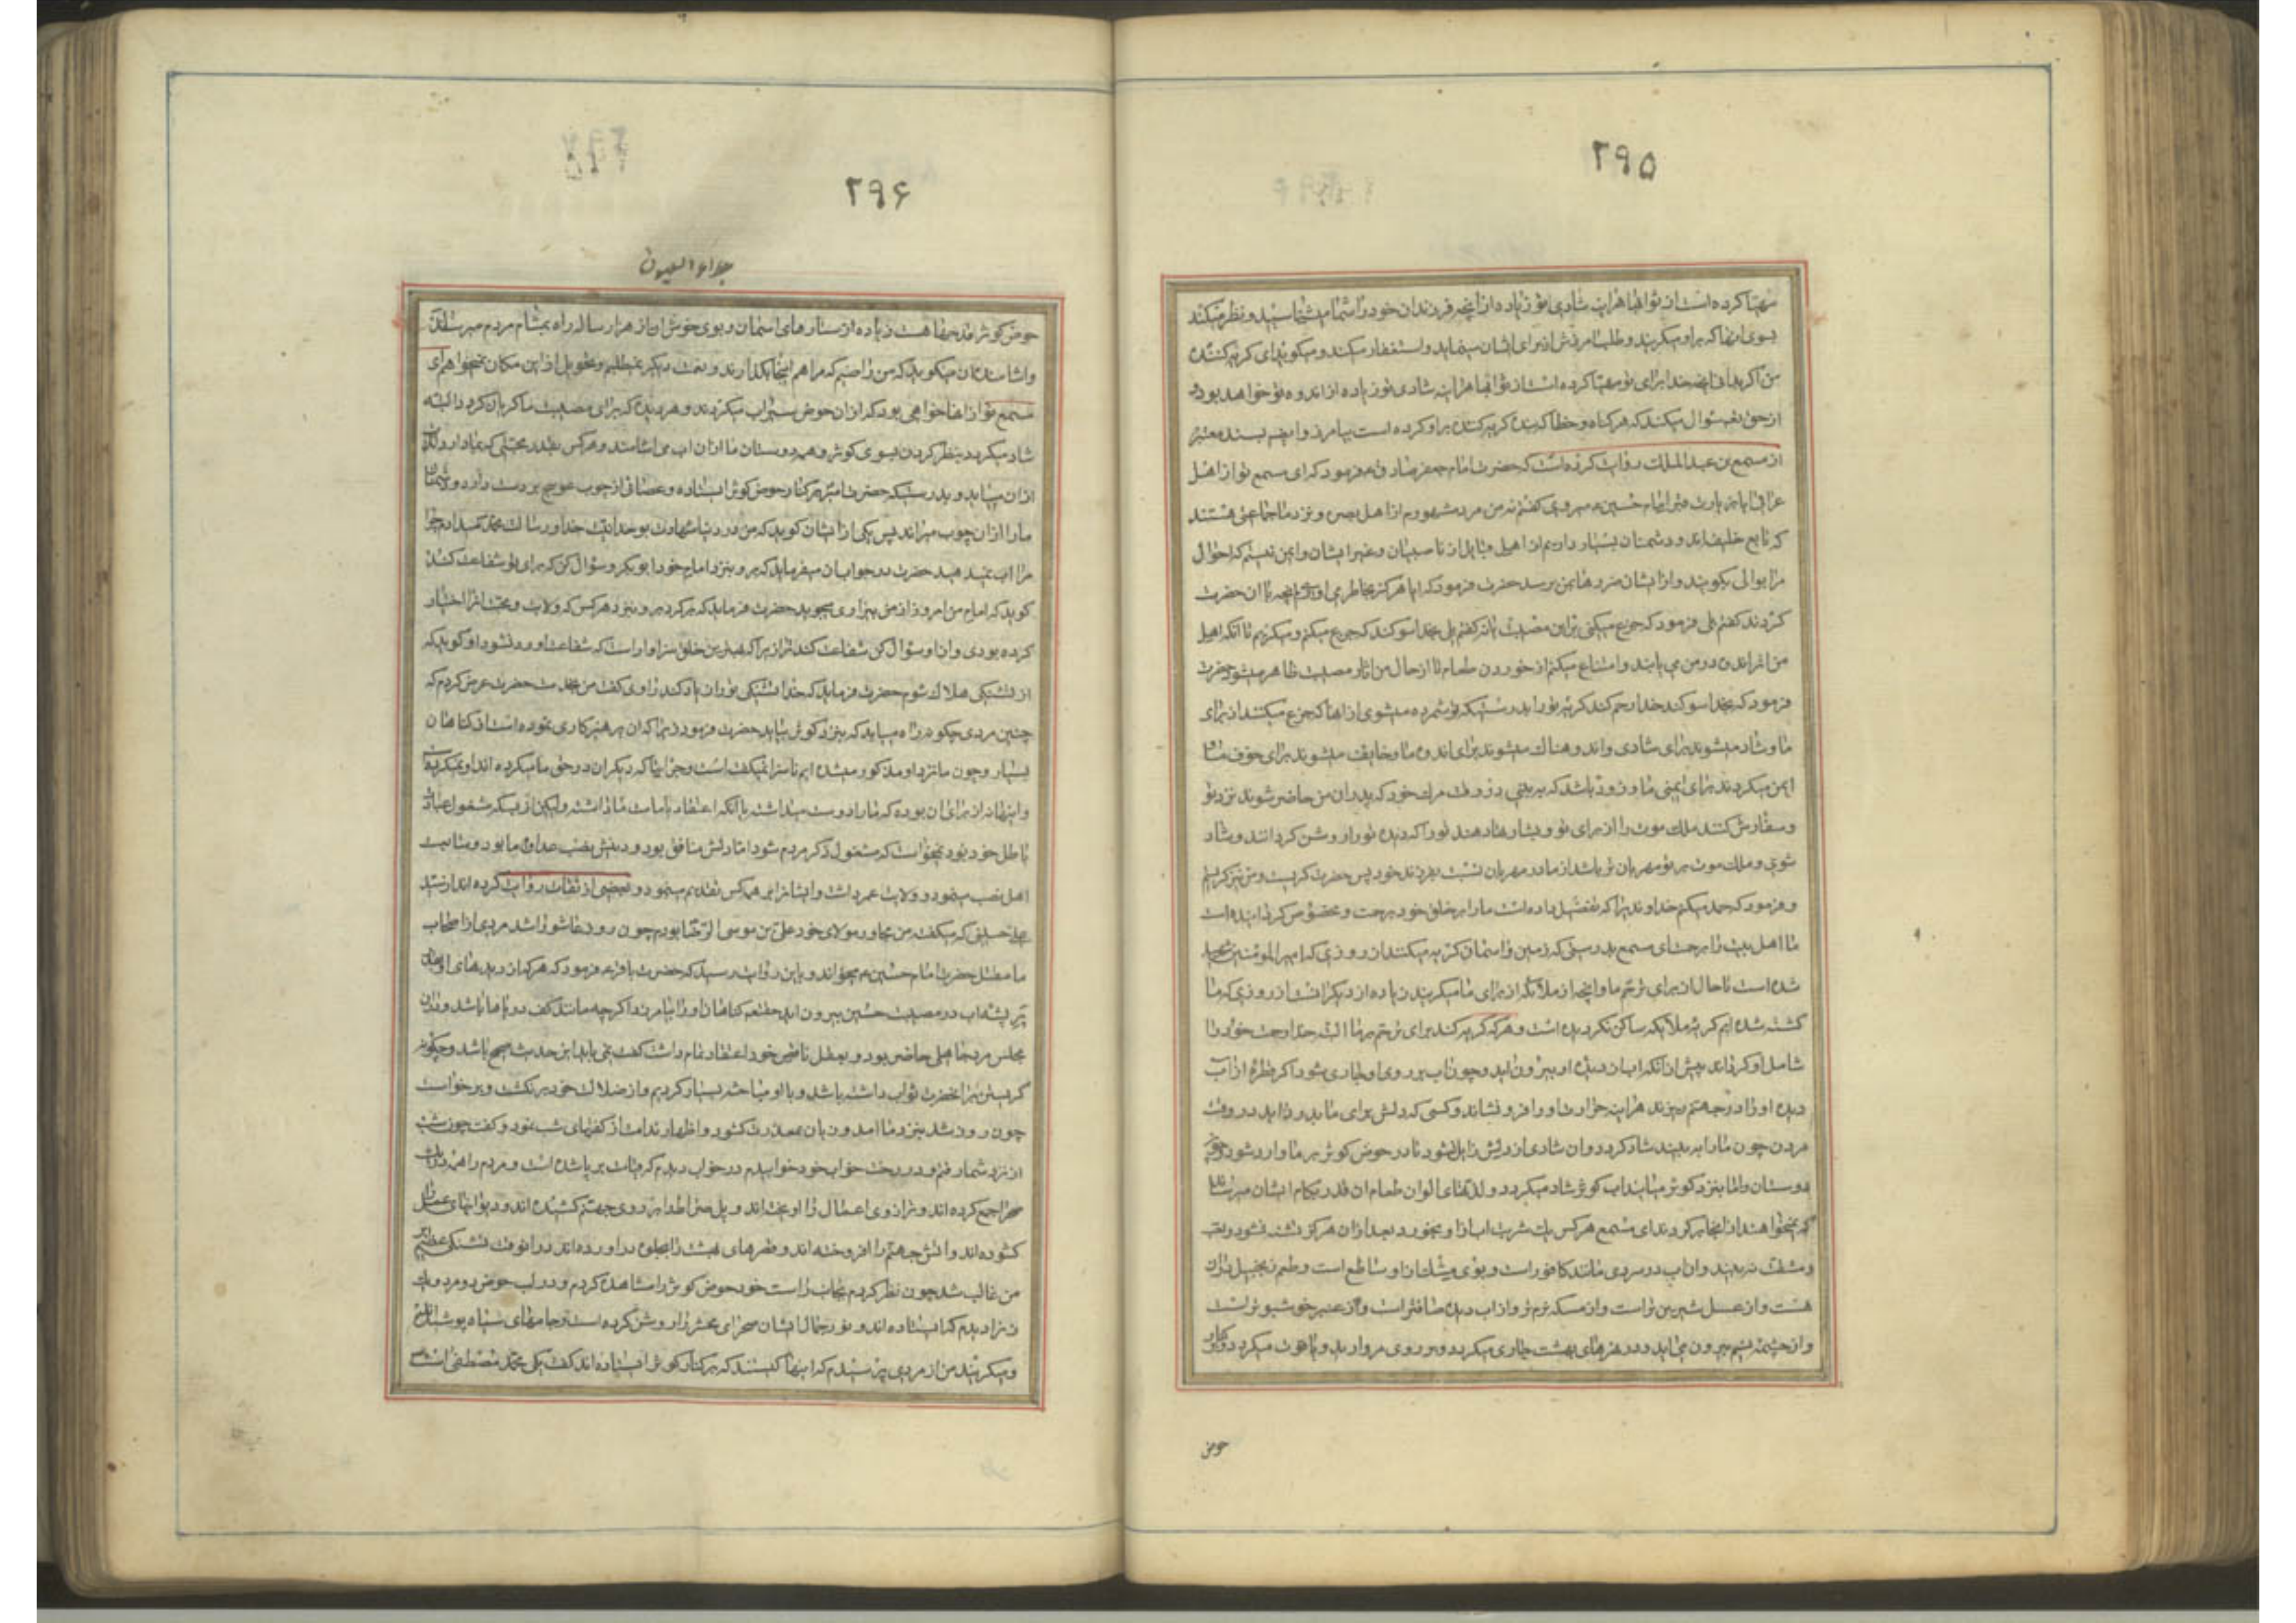 ۲۹۵
مهیا کرده است از ثوابها هراینه شادی تو زیاده از آنچه فرزندان خود را شما میشناسید و نظر میکند
بسوی آنها که بر او میکریند و طلب امرزش از برای ایشان مینماید و استغفار میکند و میکوید ای کریه کننده
من اکر بدانی آنچه خدا برای تو مهیا کرده است از ثوابها هراینه شادی تو زیاده از اندوه تو خواهد بود و
از حق تعم سوال میکند که هر کناه و خطا که بنده کریه کننده بر او کرده است بیامرزد و ایضم بسند معتبر
از مسمع بن عبد الملک روایت کرده است که حضرت امام جعفر صادق ع فرمود که ای مسمع تو از اهل
عراقی ایا بزیارت قبر امام حسین ع میروی کفتم نه من مرد مشهورم از اهل بصره و نزد ما جماعتی هستند
که تابع خلیفه‌اند و دشمنان بسیار داریم از اهل قبایل از ناصبیان و غیر ایشان و ایمن نیستم که احوال
مرا بوالی بکویند و از ایشان ضررها بمن برسد حضرت فرمود که ایا هرکز بخاطر می اوری آنچه با آن حضرت
کردند کفتم بلی فرمود که جزع میکنی بر این مصیبت کفتم بلی بخدا سوکند که جزع میکنم و میکریم تا آنکه اهل
من اثر اندوه در من می یابند و امتناع میکنم از خوردن طعام تا از حال من اثار مصیبت ظاهر میشود حضرت
فرمود که بخدا سوکند خدا رحم کند کریه تو را بدرستیکه تو شمرده میشوی از آنها که جزع میکنند از برای
ما و شاد میشوند برای شادی ما و اندوهناک میشوند برای اندوه ما و خایف میشوند برای خوف ما و
ایمن میکردند برای ایمنی ما و زود باشد که به بینی در وقت مرک خود که پدران من حاضر شوند نزد تو
و سفارش کنند ملک موت را از برای تو و بشارتها دهند تو را که دیده تو را روشن کردانند و شاد
شوی و ملک موت بر تو مهربان تر باشد از مادر مهربان نسبت بفرزند خود پس حضرت کریست و من نیز کریستم
و فرمود که حمد میکنم خداوندیرا که تفضیل داده است ما را بر خلق خود برحمت و مخصوص کردانیده است
ما اهل بیت را برحمت ای مسمع بدرستی که زمین و اسمان کریه میکنند از روزی که امیر المؤمنین شهید
شده است تا حال از برای ترحم ما و آنچه از ملائکه از برای ما میکریند زیاده از دیکرانست از روزی که ما
کشته شده ایم کریه ملائکه ساکن نکردیده است و هر که کریه کند برای ترحم بر ما البته خدا رحمت خود را
شامل او کرداند پیش از آنکه اب از دیده او بیرون اید و چون اب بر روی او جاری شود اکر قطره از آب
دیده او را در جهنم بریزند هراینه حرارت او را فرو نشاند و کسی که دلش برای ما بدرد اید در وقت
مردن چون ما را به بیند شاد کردد و ان شادی از دلش زایل نشود تا در حوض کوثر بر ما وارد شود و چون
دوستان ما بنزد کوثر میایند اب کوثر شاد میکردد و لذتهای الوان طعام ان قدر بکام ایشان میرساند
که نمیخواهند از آنجا برکردند ای مسمع هر کس یک شربت اب از او بخورد بعد از ان هرکز تشنه نشود و تعب
و مشقت نه بیند و ان اب در سردی مانند کافور است و بوی مشک از او ساطع است و طعم زنجبیل در ان
هست و از عسل شیرین تر است و از مسکه نرم تر و از اب دیده صافتر است و از عنبر خوشبوتر است
و از چشمه تسنیم بیرون می اید و در نهرهای بهشت جاری میکردد و بر روی مروارید و یاقوت میکردد و در کنار
حوض
۲۹۶
جلاء العیون
حوض کوثر قدحها هست زیاده از ستارهای اسمان و بوی خوش ان از هزار ساله راه بمشام مردم میرسد و
و اشامنده ان میکوید که من راضیم که مرا هم اینجا بکذارند و نعمت دیکر نمیطلبم و تحویل از این مکان نمیخواهم ای
مسمع تو از آنها خواهی بود که از ان حوض سیراب میکردند و هر دیده که برای مصیبت ما کریان کردد البته
شاد میکردد بنظر کردن بسوی کوثر و همه دوستان ما از ان اب می اشامند و هر کس بقدر محبتی که بما دارد لذت
از ان مییابد و بدرستیکه حضرت امیر بر کنار حوض کوثر ایستاده و عصائی از چوب عوسج بر دست دارد و دشمنان
ما را از ان چوب میراند پس یکی از ایشان کوید که من در دنیا شهادت بوحدانیت خدا و رسالت محمد میدادم چرا
مرا اب نمیدهید حضرت در جواب ان میفرماید که برو بنزد امام خود ابوبکر و سؤال کن که برای تو شفاعت کند
کوید که امام من امروز از من بیزاری میجوید حضرت فرماید که برکرد برو بنزد هر کس که ولایت و محبت او را اختیار
کرده بودی و از او سؤال کن شفاعت کند ترا زیرا که بهترین خلق سزاوار است که شفاعت او رد نشود او کوید که
از تشنکی هلاک شوم حضرت فرماید که خدا تشنکی تو را زیاد کند راوی کفت من بخدمت حضرت عرض کردم که
چنین مردی چکونه راه مییابد که بنزد کوثر بیاید حضرت فرمود زیرا که ان پرهیزکاری نموده است از کناهان
بسیار و چون ما نزد او مذکور میشده ایم ناسزا نمیکفته است و جراتها که دیکران در حق ما میکرده اند او نمیکرده
و اینها نه از برای ان بوده که ما را دوست میداشته یا آنکه اعتقاد بامامت ما داشته ولیکن از بسکه مشغول عبادت
باطل خود بود نمیخواست که مشغول ذکر مردم شود اما دلش منافق بود و دینش نصب عداوت ما بود و متابعت
اهل نصب مینمود و ولایت عمر داشت و ایشانرا بر همه کس تقدیم مینمود و بعضی از ثقات روایت کرده اند از سید
علی حسینی که میکفت من مجاور مولای خود علی بن موسی الرضا بودم چون روز عاشورا شد مردی از اصحاب
ما مقتل حضرت امام حسین ع میخواند و باین روایت رسید که حضرت باقر ع فرمود که هر که از دیدهای او بقدر
پر پشه اب در مصیبت حسین بیرون اید حقتعم کناهان او را بیامرزد اکرچه مانند کف دریاها باشد و در ان
مجلس مرد جاهلی حاضر بود و بعقل ناقص خود اعتقاد تمام داشت کفت نمی باید این حدیث صحیح باشد و چکونه
کریستن بر آنحضرت ثواب داشته باشد و با او مباحثه بسیار کردیم و از ضلالت خود برنکشت و برخواست
چون روز شد بنزد ما امد و زبان بمعذرت کشود و اظهار ندامت از کفتهای شب نمود و کفت چون شب
از نزد شما رفتم و در رخت خواب خود خوابیدم در خواب دیدم که قیامت بر پا شده است و مردم را همه در یک
صحرا جمع کرده اند و ترازوی اعمال را اویخته‌اند و پل صراط را بر روی جهنم کشیده اند و دیوانهای عمل را
کشوده اند و آتش جهنم را افروخته اند و قصرهای بهشت را بجلوه در آورده اند در انوقت تشنکی عظیم بر
من غالب شد چون نظر کردم بجانب راست خود حوض کوثر را مشاهده کردم و در لب حوض دو مرد و یک
زن را دیدم که ایستاده اند و نور جمال ایشان صحرای محشر را روشن کرده است و جامهای سیاه پوشیده‌اند
و میکریند من از مردی پرسیدم که اینها کیستند که بر کنار کوثر ایستاده اند کفت یکی محمد مصطفی است